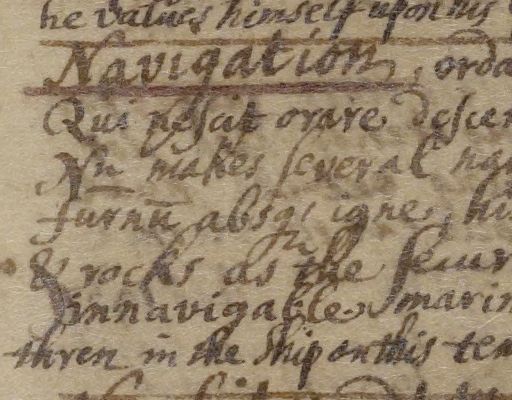 he values himself upon his
Navigation, orda
Qui nescit orare descen
Nu makes several na
furnū absq; igne, his
& rocks as the secur
innavigable marin
thren in the ship on this tem